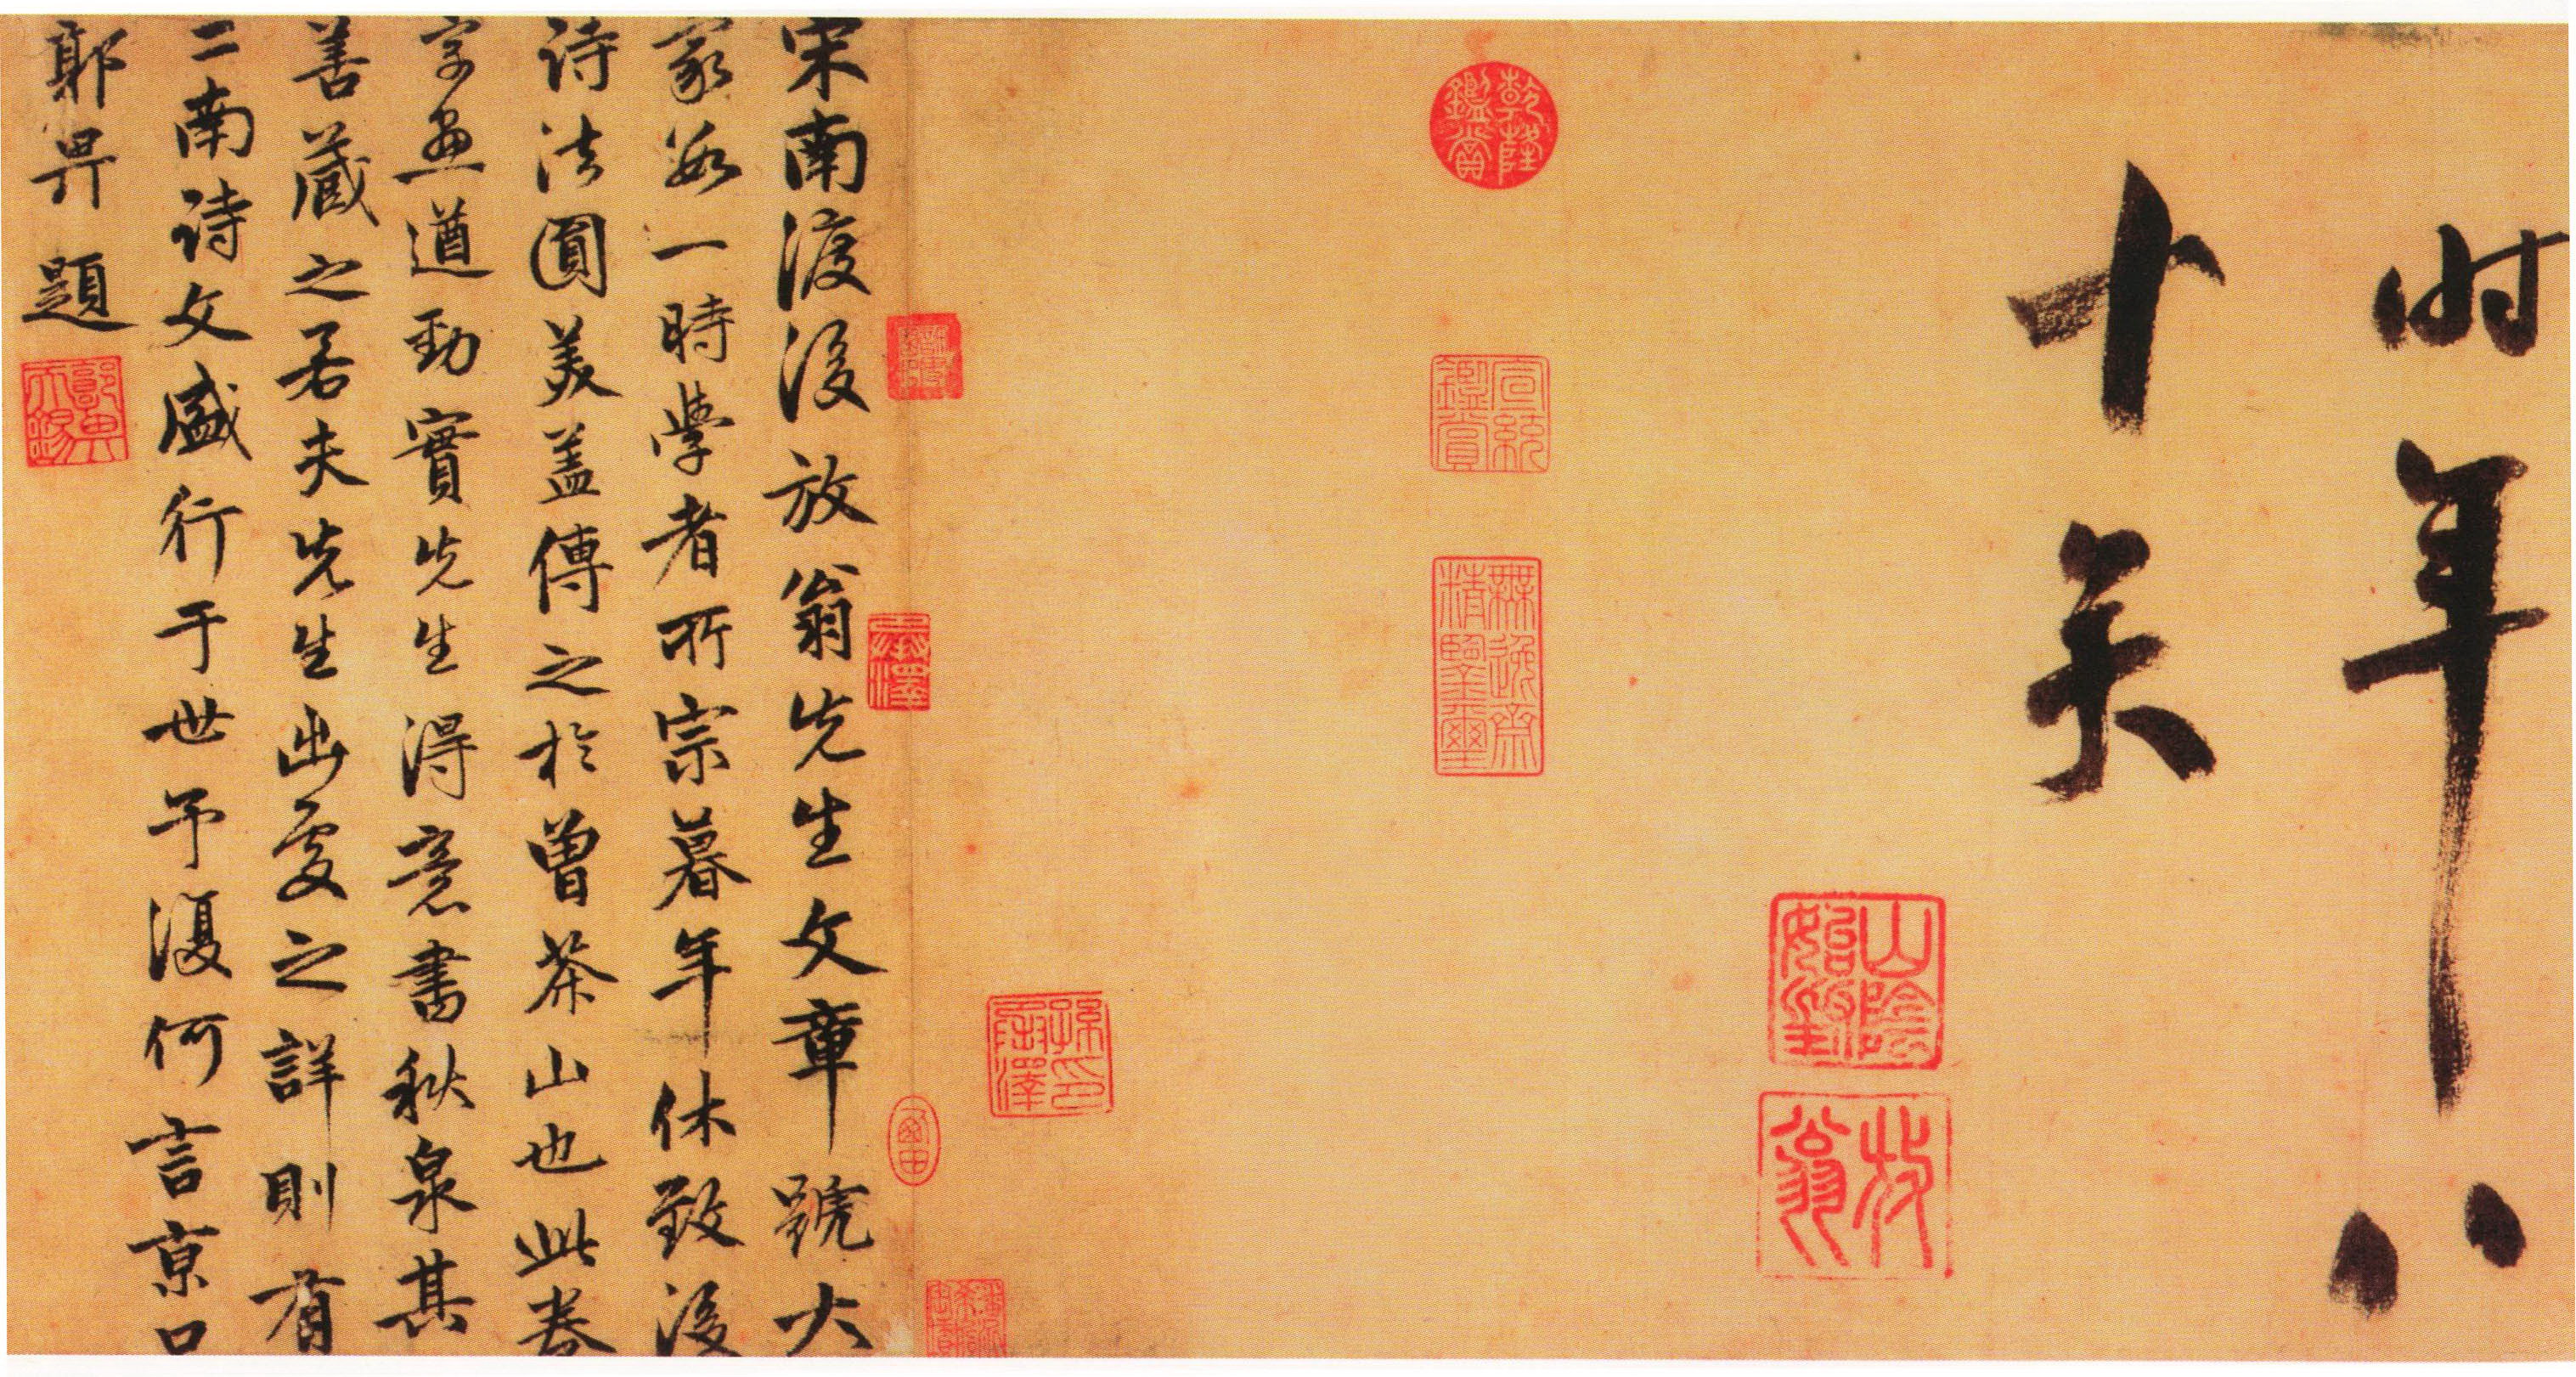 时年八
十矣
乾隆鑑賞
宣統鑑賞
無逸齋精鑒璽
山陰始封
放翁
宋南渡後放翁先生文章號大
家數一時學者所宗暮年休致後
詩法圓美盖傳之於曽茶山也此卷
字畫遒勁實先生得意書秋泉其
善藏之若夫先生出處之詳則有
二南詩文盛行于世予復何言京口
郭畀題